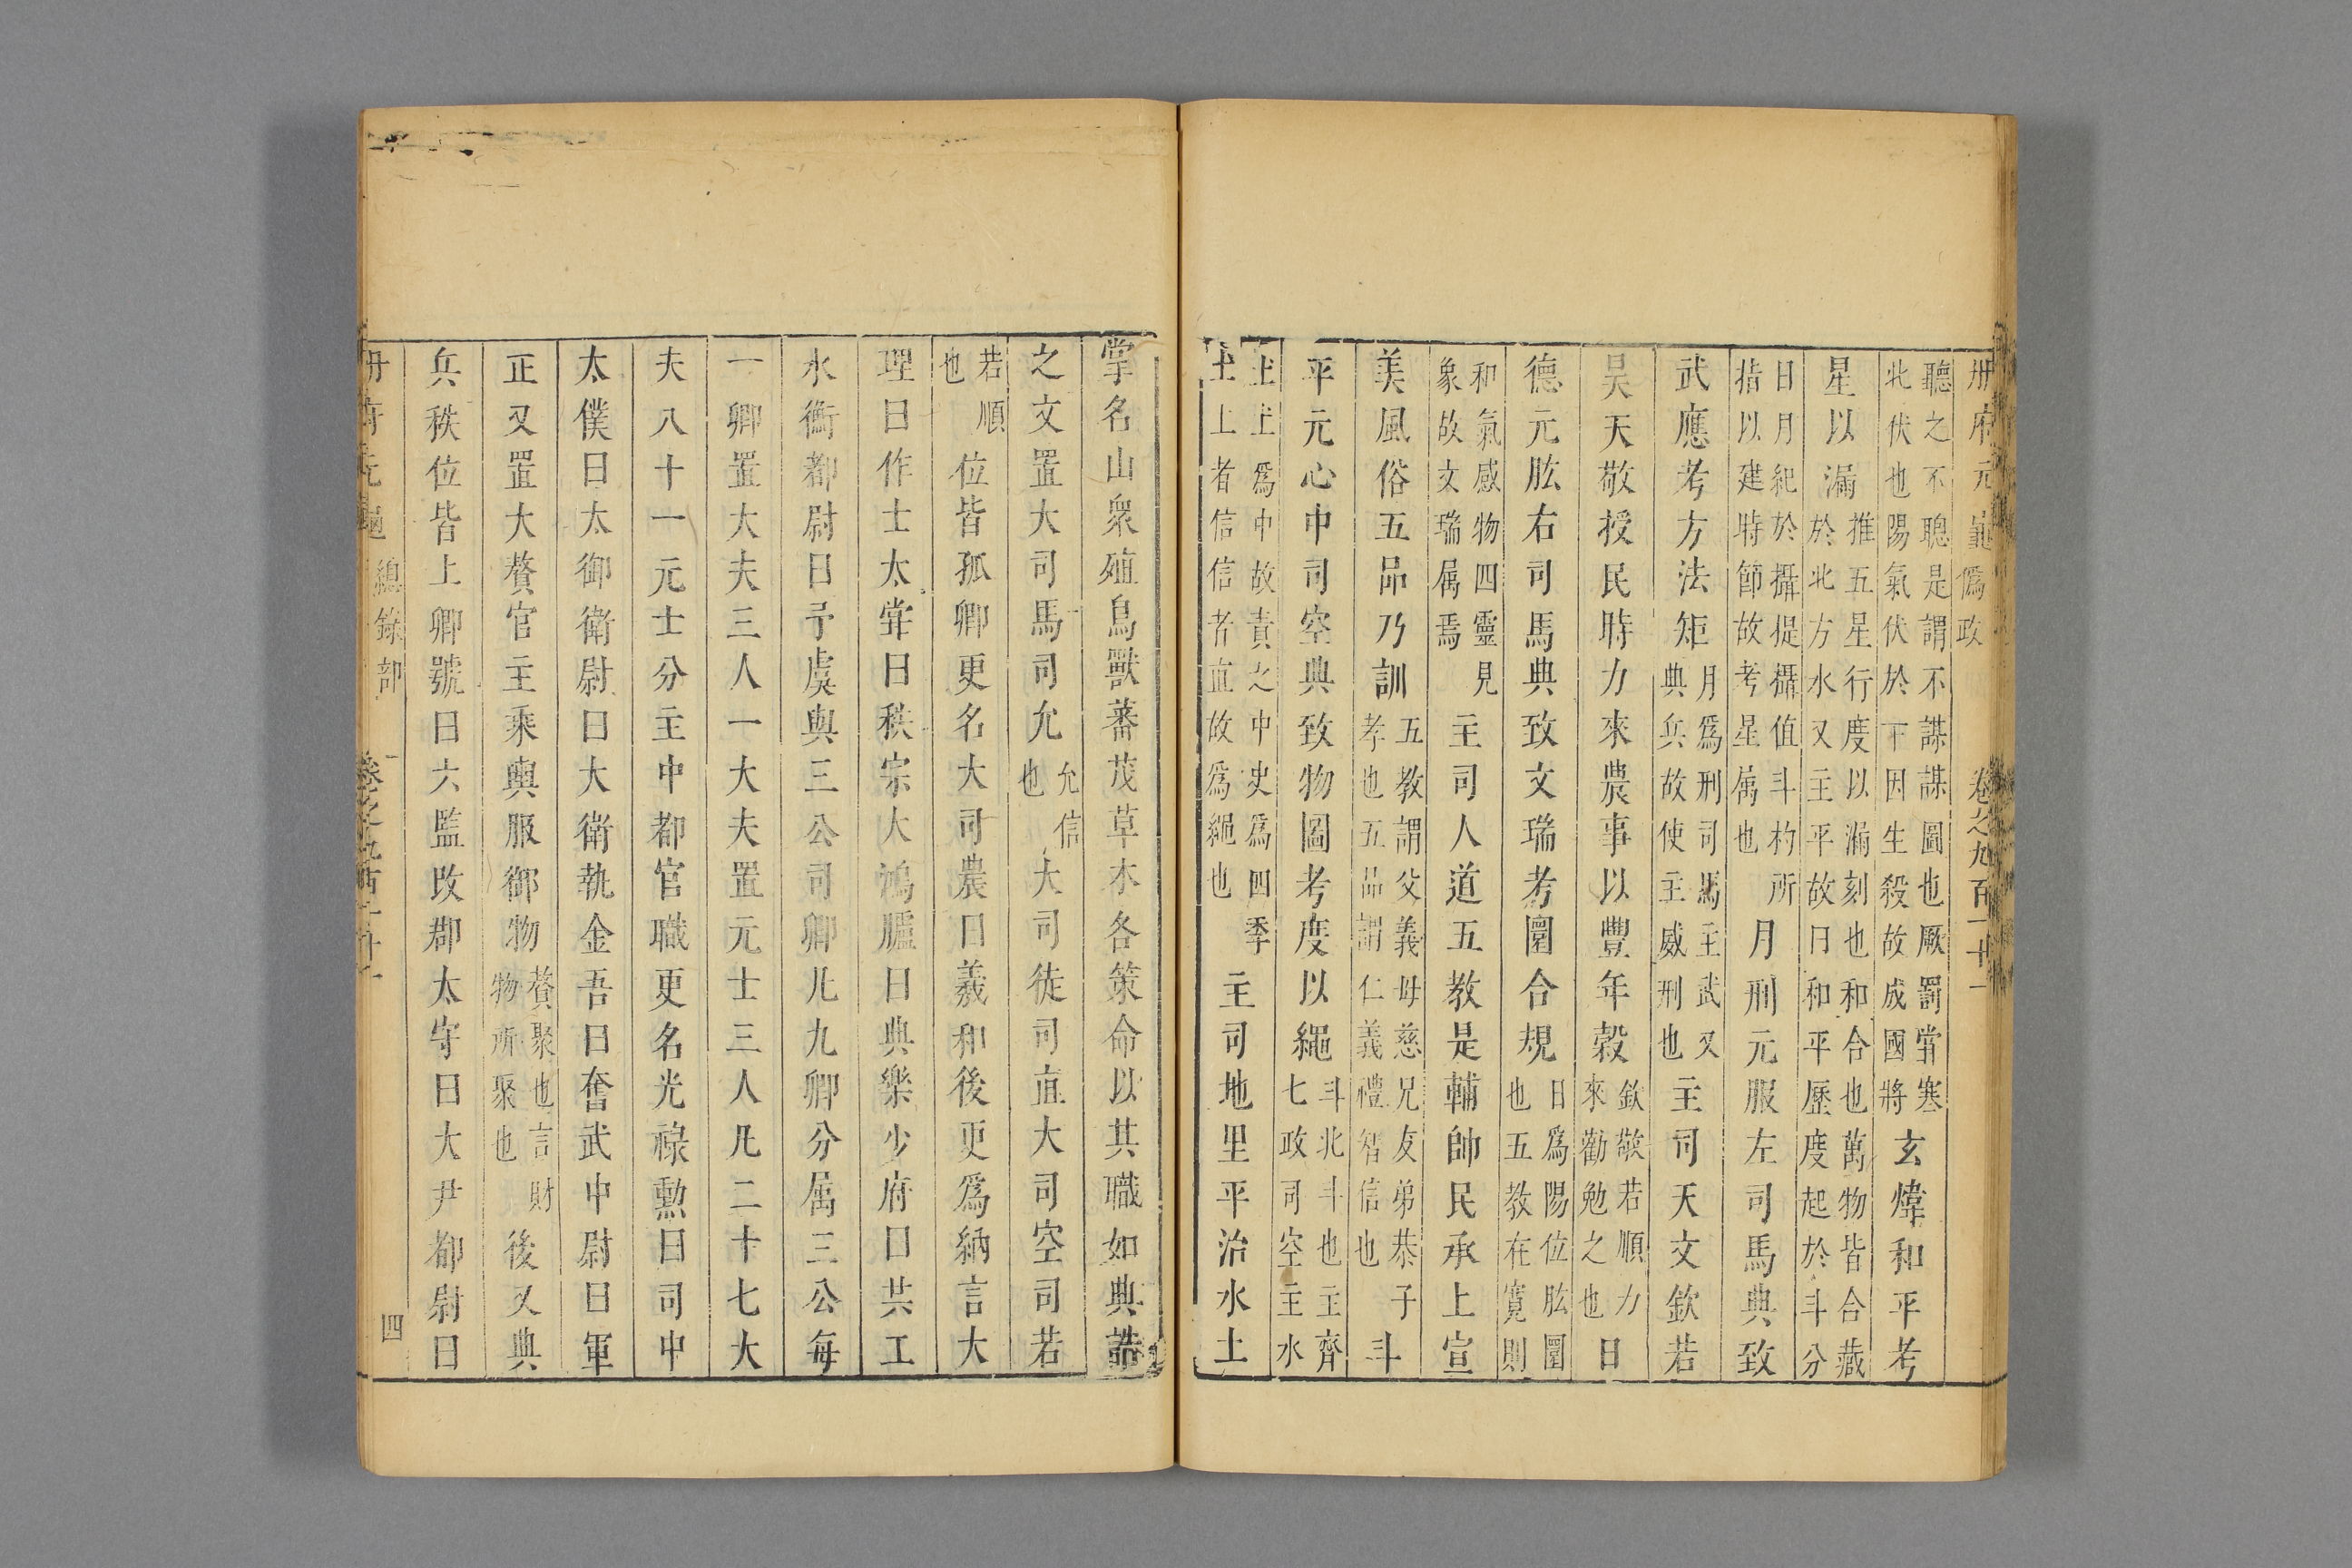 冊府元龜僞政 卷之九百一十一
聽之不聰是謂不謀謀圖也厥罰常寒
北伏也陽氣伏於下因生殺故成國將玄煒和平考
星以漏推五星行度以漏刻也和合也萬物皆合藏
於北方水又主平故曰和平歷度起於斗分
日月紀於攝提攝值斗杓所
指以建時節故考星属也月刑元服左司馬典致
武應考方法矩月爲刑司馬主武又
典兵故使主威刑也主司天文欽若
昊天敬授民時力來農事以豐年穀欽敬若順力
來勸勉之也日
德元肱右司馬典致文瑞考圜合規日爲陽位肱圜
也五教在寬則
和氣感物四靈見
象故文瑞属焉主司人道五教是輔帥民承上宣
美風俗五品乃訓五教謂父義母慈兄友弟恭子
孝也五品謂仁義禮智信也斗
平元心中司空典致物圖考度以繩斗北斗也主齊
七政司空主水
土土爲中故責之中史爲四季
土上者信信者直故爲繩也主司地里平治水土
掌名山衆殖鳥獸蕃茂草木各策命以其職如典誥
之文置大司馬司允允信
也大司徒司直大司空司若
若順
也位皆孤卿更名大司農曰羲和後更爲納言大
理曰作士太常曰秩宗大鴻臚曰典樂少府曰共工
水衡都尉曰予虞與三公司卿凡九卿分属三公每
一卿置大夫三人一大夫置元士三人凡二十七大
夫八十一元士分主中都官職更名光祿勲曰司中
太僕曰太御衛尉曰大衛執金吾曰奮武中尉曰軍
正又置大贅官主乘輿服御物贅聚也言財
物所聚也後又典
兵秩位皆上卿號曰六監改郡太守曰大尹都尉曰
冊府元龜 總錄部 卷之九百一十一 四